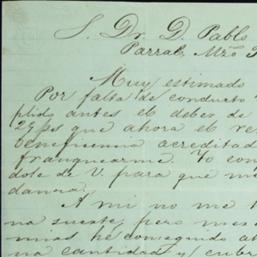 S. Dr. D. Pablo
Parral, Mzo
Muy estimado
Por falta de conducto
plido antes el deber de
29 ps que ahora le re
acreditad
franquearme. Yo con
dole de V. para que m
danza,
A mi no me
na suerte, pero
mias he conseguido
na cantidad y cubr